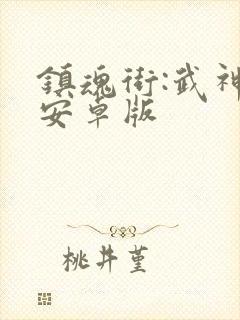 鎮魂街:武神
安卓版
桃井堇